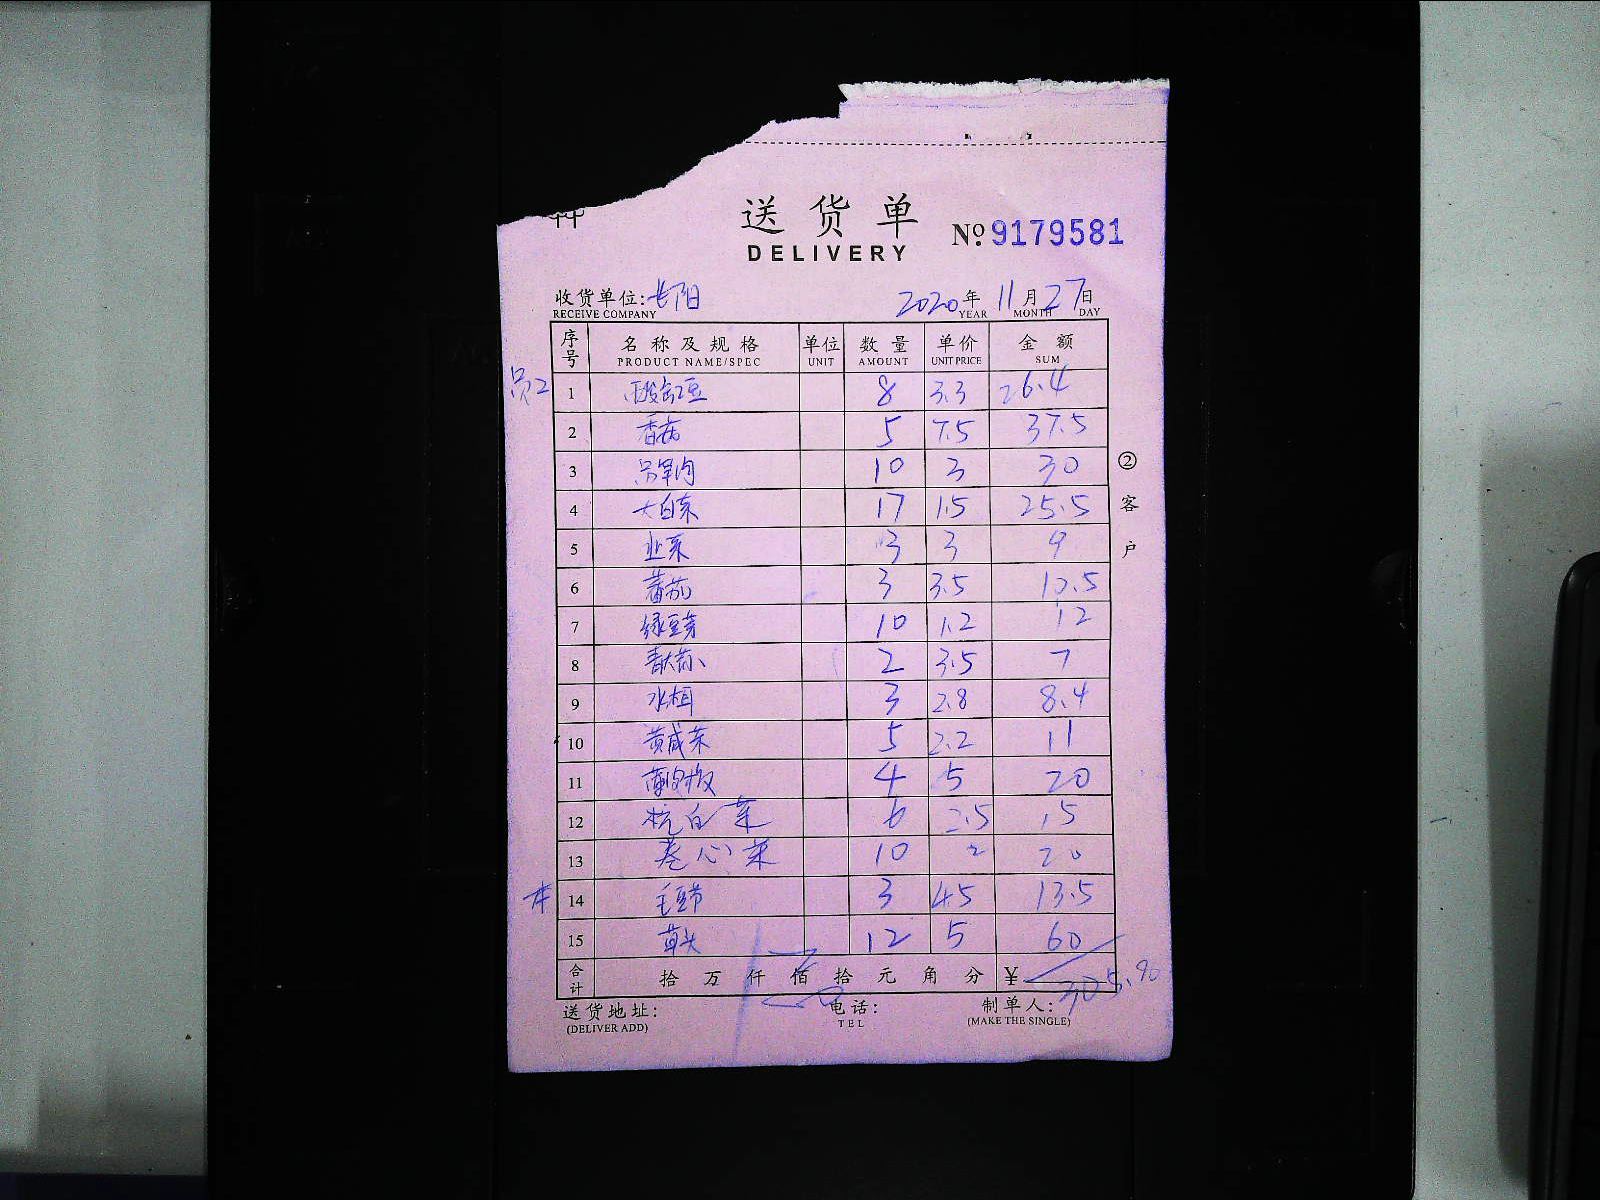 送货单
DELIVERY
№ 9179581
收货单位: 长阳 2020年 11月 27日
RECEIVE COMPANY YEAR MONTH DAY
序号 名称及规格 单位 数量 单价 金额
PRODUCT NAME/SPEC UNIT AMOUNT UNIT PRICE SUM
员工 1 酸缸豆 8 3.3 26.4
2 香菇 5 7.5 37.5
3 10 3 30
4 大白菜 17 1.5 25.5
5 韭菜 3 3 9
6 蕃茄 3 3.5 10.5
7 绿豆芽 10 1.2 12
8 2 3.5 7
9 3 2.8 8.4
10 黄咸菜 5 2.2 11
11 4 5 20
12 杭白菜 6 2.5 15
13 卷心菜 10 2 20
14 毛豆节 3 4.5 13.5
15 草头 12 5 60
合计 拾万仟佰拾元角分 ¥ 305.90
送货地址: 电话: 制单人:
(DELIVER ADD) TEL (MAKE THE SINGLE)
②客户